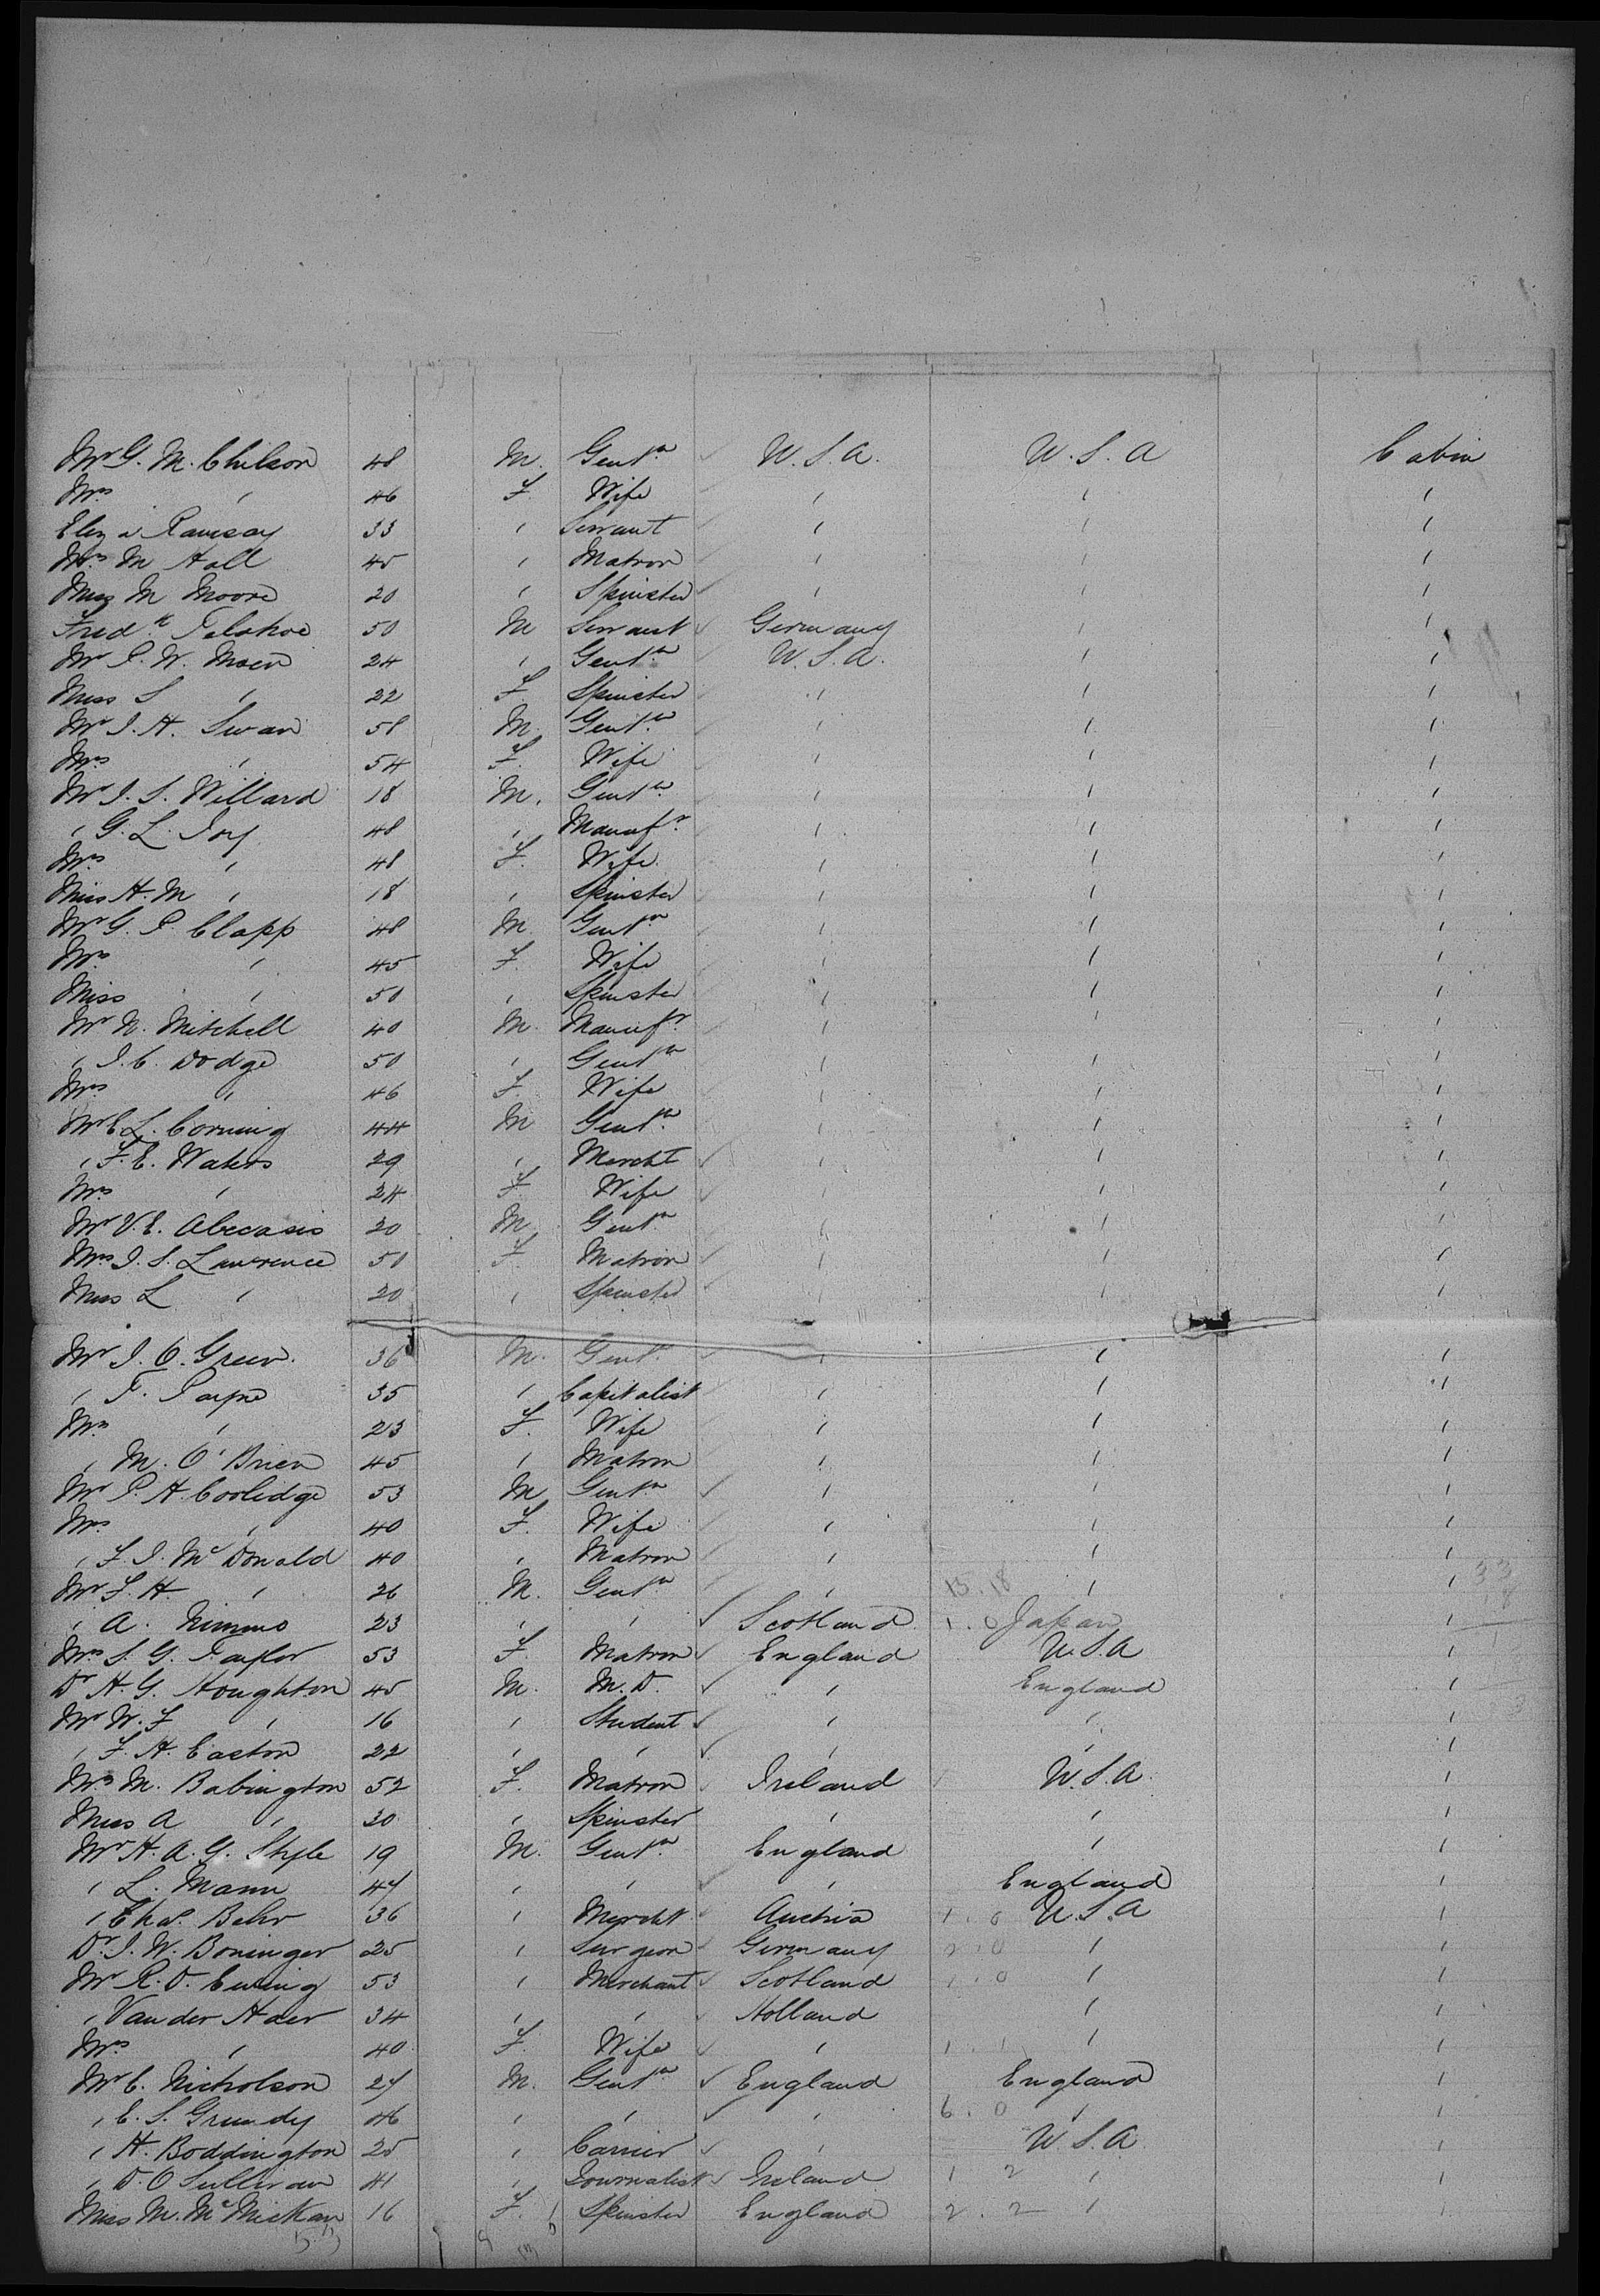 Mr G. M. Chilson 48 M. Gentn U.S.A. U.S.A Cabin
Mrs " 46 F. Wife " " "
Eliza Ramsay 33 " Servant " " "
Mrs M Hall 45 " Matron " " "
Miss M Moore 20 " Spinster " " "
Fredk 50 M Servant Germany " "
Mr P. W. Moen 24 " Gentn U.S.A. " "
Miss S " 22 F. Spinster " " "
Mr J. H. Swan 58 M. Gentn " " "
Mrs " 54 F. Wife " " "
Mr J. S. Willard 18 M. Gentn " " "
" G. L. Joy 48 " Manufr " " "
Mrs " 48 F. Wife " " "
Miss H. M " 18 " Spinster " " "
Mr G. P. Clapp 48 M. Gentn " " "
Mrs " 45 F. Wife " " "
Miss " 50 " Spinster " " "
Mr N. Mitchell 40 M. Manufr " " "
" J. C. Dodge 50 " Gentn " " "
Mrs " 46 F. Wife " " "
Mr E L. Corning 44 M Gentn " " "
" F. E. Waters 29 " Mercht " " "
Mrs " 24 F. Wife " " "
Mr V. E. Abecasis 20 M Gentn " " "
Mrs J. S. Lawrence 50 F. Matron " " "
Miss L " 20 " Spinster " " "
Mr J. O. Green 36 M. Gentn " " "
" T. Payne 35 " Capitalist " " "
Mrs " 23 F. Wife " " "
" M. O'Brien 45 " Matron " " "
Mr P. H. Coolidge 53 M Gentn " " "
Mrs " 40 F. Wife " " "
" F. J. McDonald 40 " Matron " " "
Mr F. H. " 26 M. Gentn " 15.18 " " 33
" A. Nimmo 23 " " Scotland 1.0 Japan "
Mrs S. G. Taylor 53 F. Matron England U.S.A "
Dr H. G. Houghton 45 M. M.D. " England "
Mr W. F " 16 " Student " " "
" F. H. Easton 22 " " " " "
Mrs M. Babington 52 F. Matron Ireland U.S.A. "
Miss A " 30 " Spinster " " "
Mr H. A. G. Style 19 M. Gentn England " "
" L. Mann 47 " " " England "
" Chas. Behr 36 " Mercht Austria 1.0 U.S.A "
Dr J. W. Boninger 25 " Surgeon Germany 2.0 " "
Mr R. D. Ewing 53 " Merchant Scotland 1.0 " "
" Van der Hoer 34 " " Holland " "
Mrs " 40 F. Wife " 1.1 " "
Mr C. Nicholson 27 M. Gentn England England "
" E. S. Grundy 46 " " " 6.0 " "
" H. Boddington 25 " Carrier " U.S.A. "
" D. O'Sullivan 41 " Journalist Ireland 1 2 " "
Miss M. McMickan 16 F. Spinster England 2.2 " "